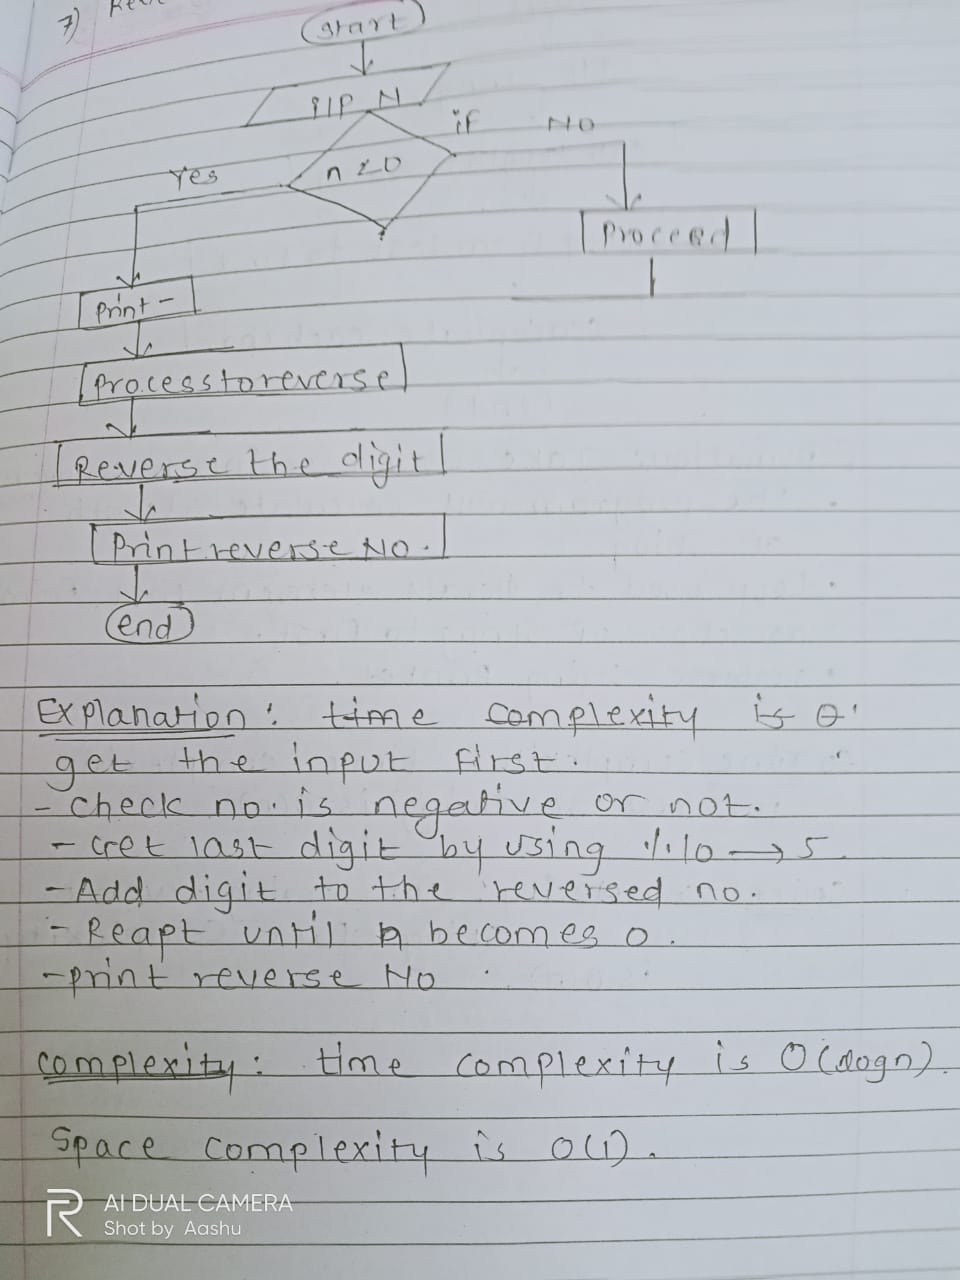 7)
Start
I/P N
if NO
Yes
n < 0
Proceed
Print -
Process to reverse
Reverse the digit
Print reverse No.
end
Explanation: time complexity is
get the input first.
- check no. is negative or not.
- Get last digit by using %10 → 5
- Add digit to the reversed no.
- Reapt until n becomes 0.
- print reverse No
complexity: time complexity is O(logn).
Space complexity is O(1).
AI DUAL CAMERA
Shot by Aashu